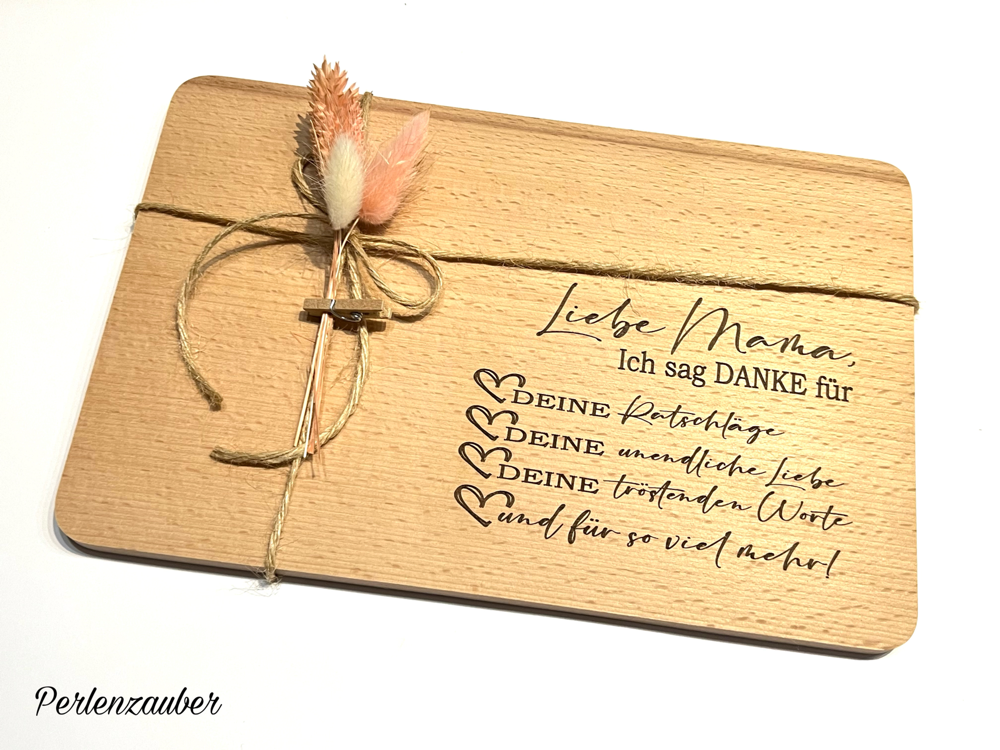 Liebe Mama,
Ich sag DANKE für
DEINE Ratschläge
DEINE unendliche Liebe
DEINE tröstenden Worte
und für so viel mehr!
Perlenzauber